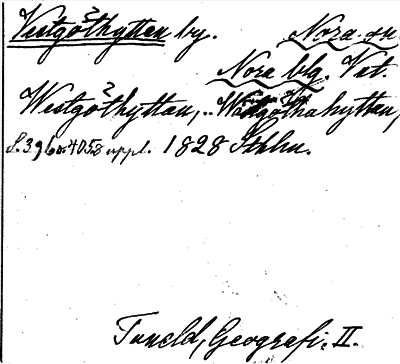 Vestgöthyttan by. Nora sn
Nora blg. Vst.
Westgöthyttan,
S. 396 o. 405. 8 uppl. 1828 Sthlm.
Tuneld, Geografi, II.